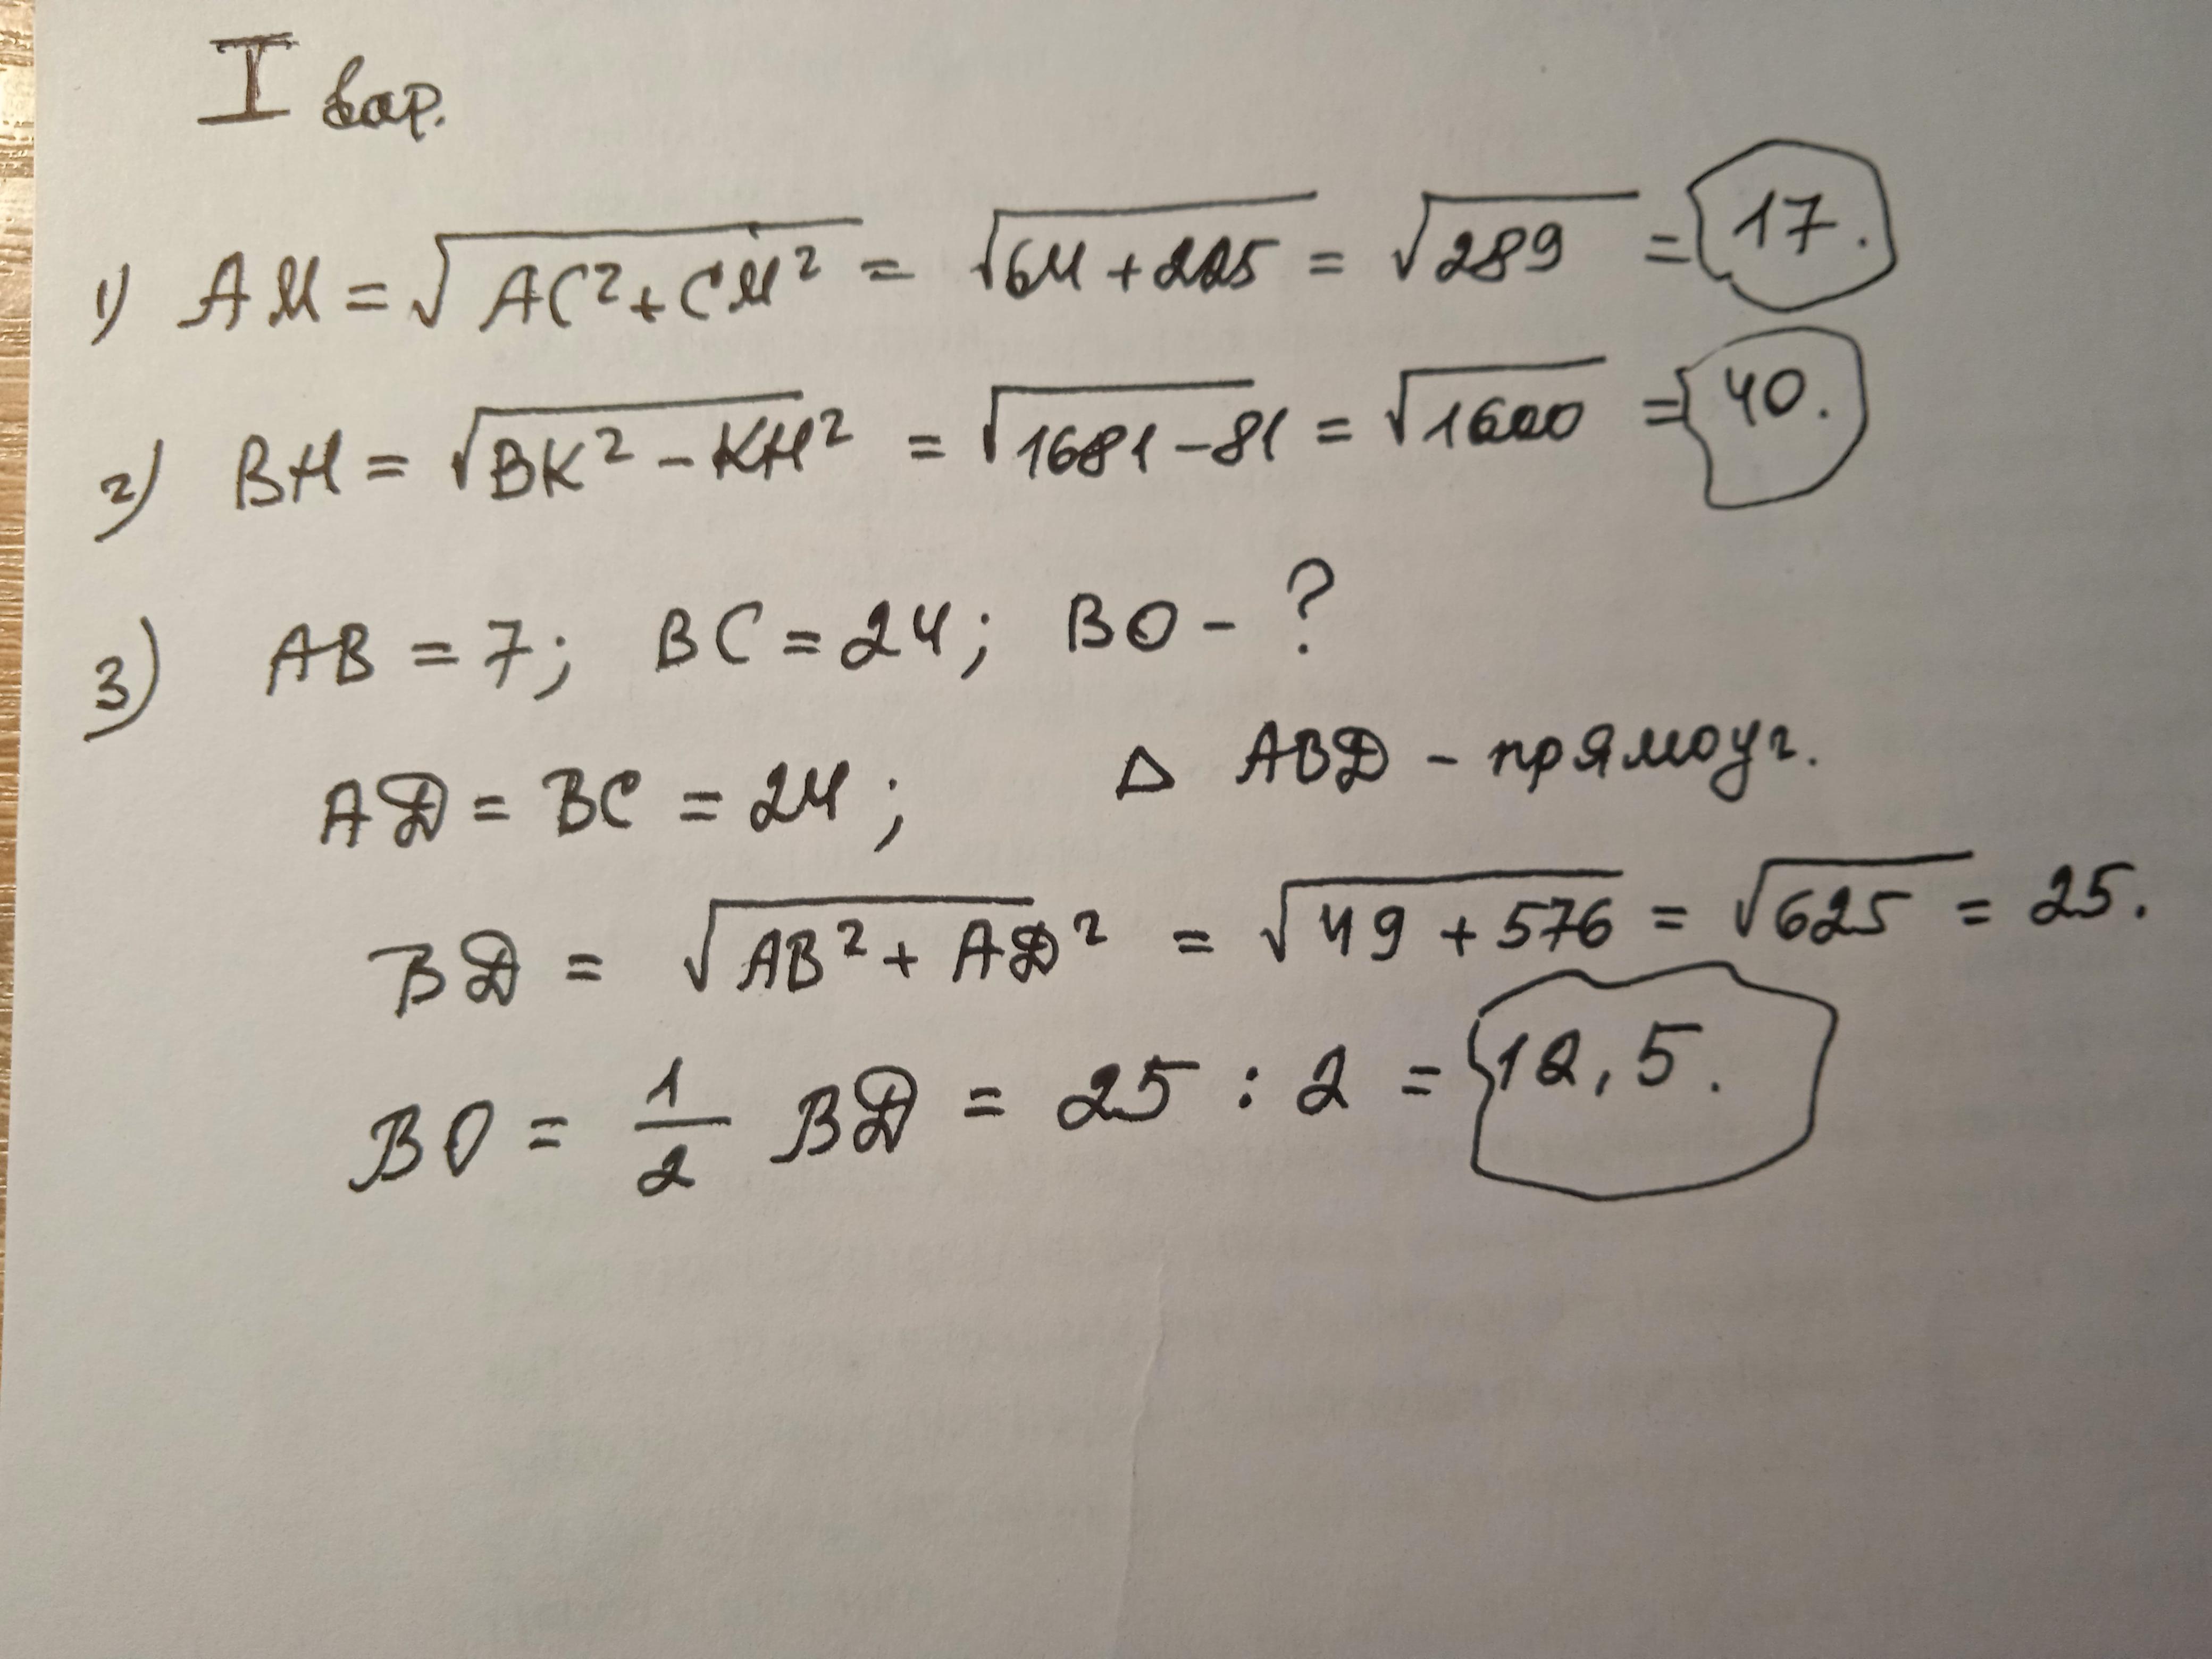 I вар.
1) AM = √AC² + CM² = √64 + 225 = √289 = 17.
2) BH = √BK² - KH² = √1681 - 81 = √1600 = 40.
3) AB = 7; BC = 24; BO - ?
AD = BC = 24; △ ABD - прямоуг.
BD = √AB² + AD² = √49 + 576 = √625 = 25.
BO = 1/2 BD = 25 : 2 = 12,5.